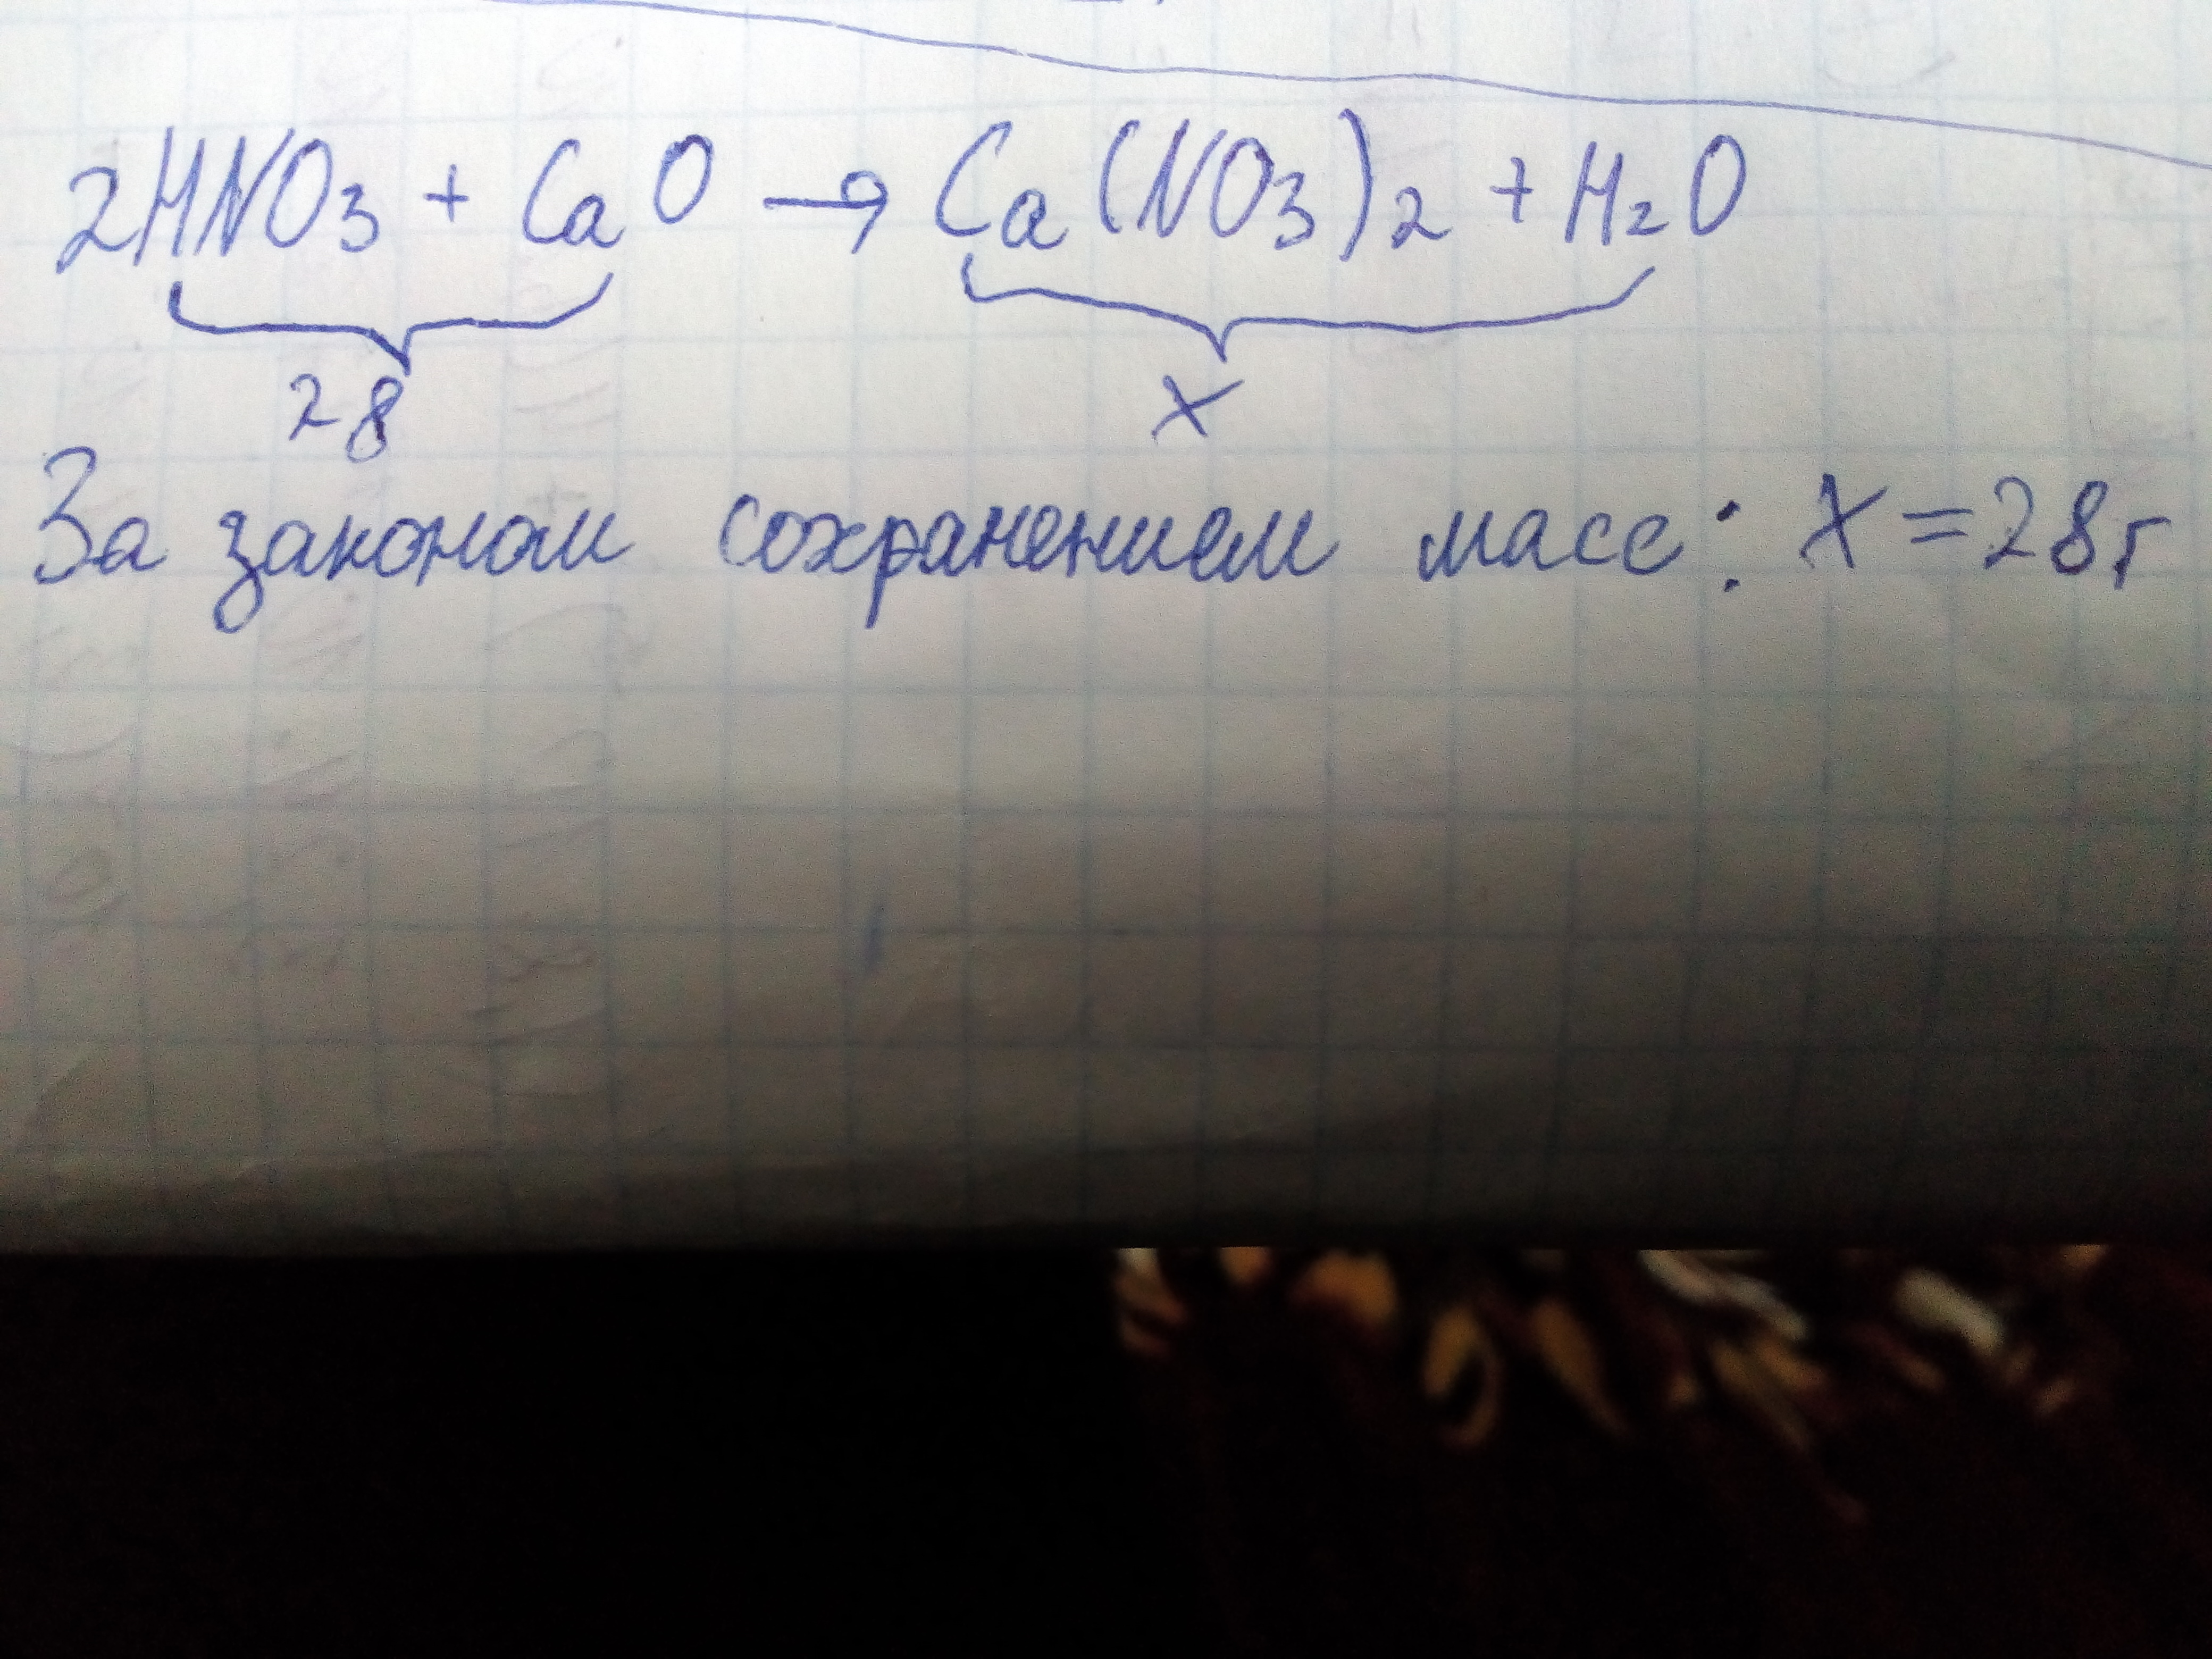 2HNO3 + CaO → Ca(NO3)2 + H2O
28 x
За законом сохранением масс: x = 28г